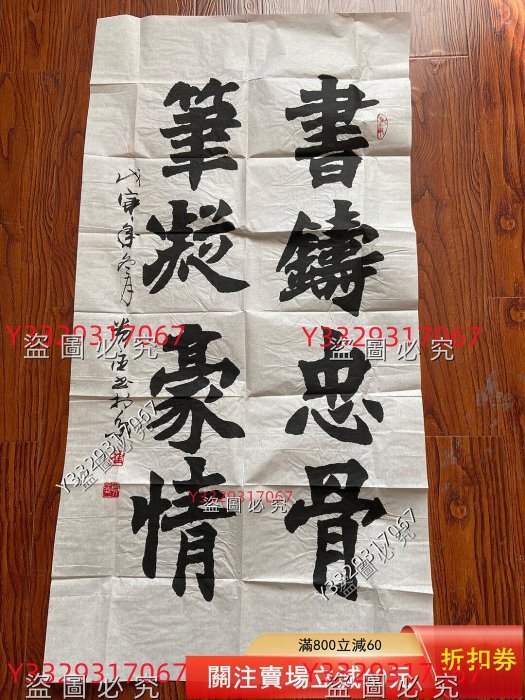 書鑄忠骨
筆凝豪情
戊寅年冬月
Y3329317067
盜圖必究
Y3329317067
盜圖必究
Y3329317067
盜圖必究
Y3329317067
盜圖必究
Y3329317067
盜圖必究
Y3329317067
盜圖必究
Y3329317067
盜圖必究
Y3329317067
盜圖必究
滿800立減60
關注賣場立減10元
折扣券